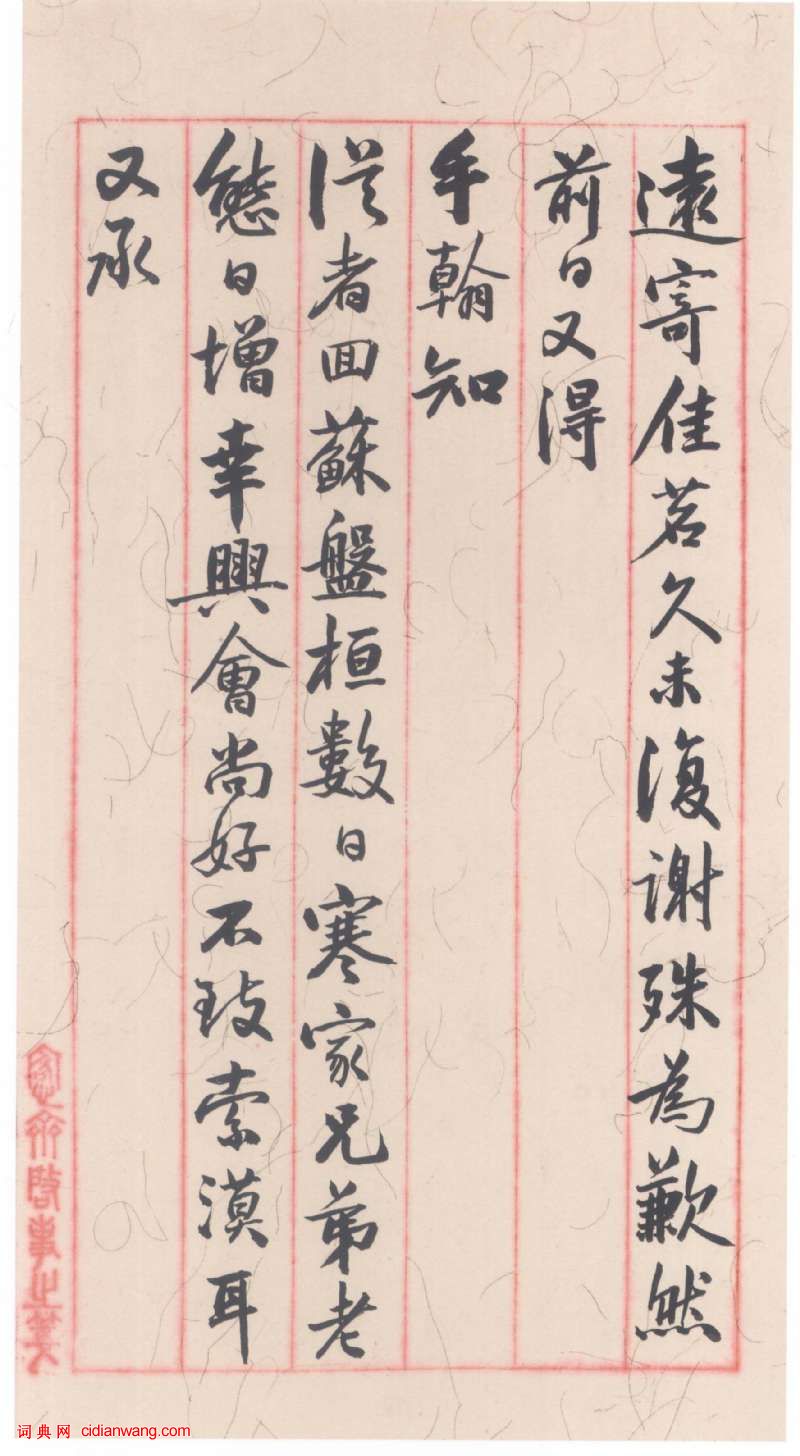 遠寄佳茗久未復謝殊為歉然
前日又得
手翰知
從者回蘇盤桓數日寒家兄弟老
態日增幸興會尚好不致索漠耳
又承
词典网 cidianwang.com